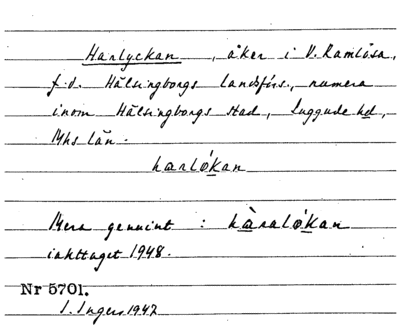 Harlyckan, åker i V. Ramlösa,
f.d. Hälsingborgs landsförs., numera
inom Hälsingborgs stad, Luggude hd,
Mhs län.
harlókan
Mera genuint: hàralókan
iakttaget 1948.
Nr 5701.
I. Ingers 1947